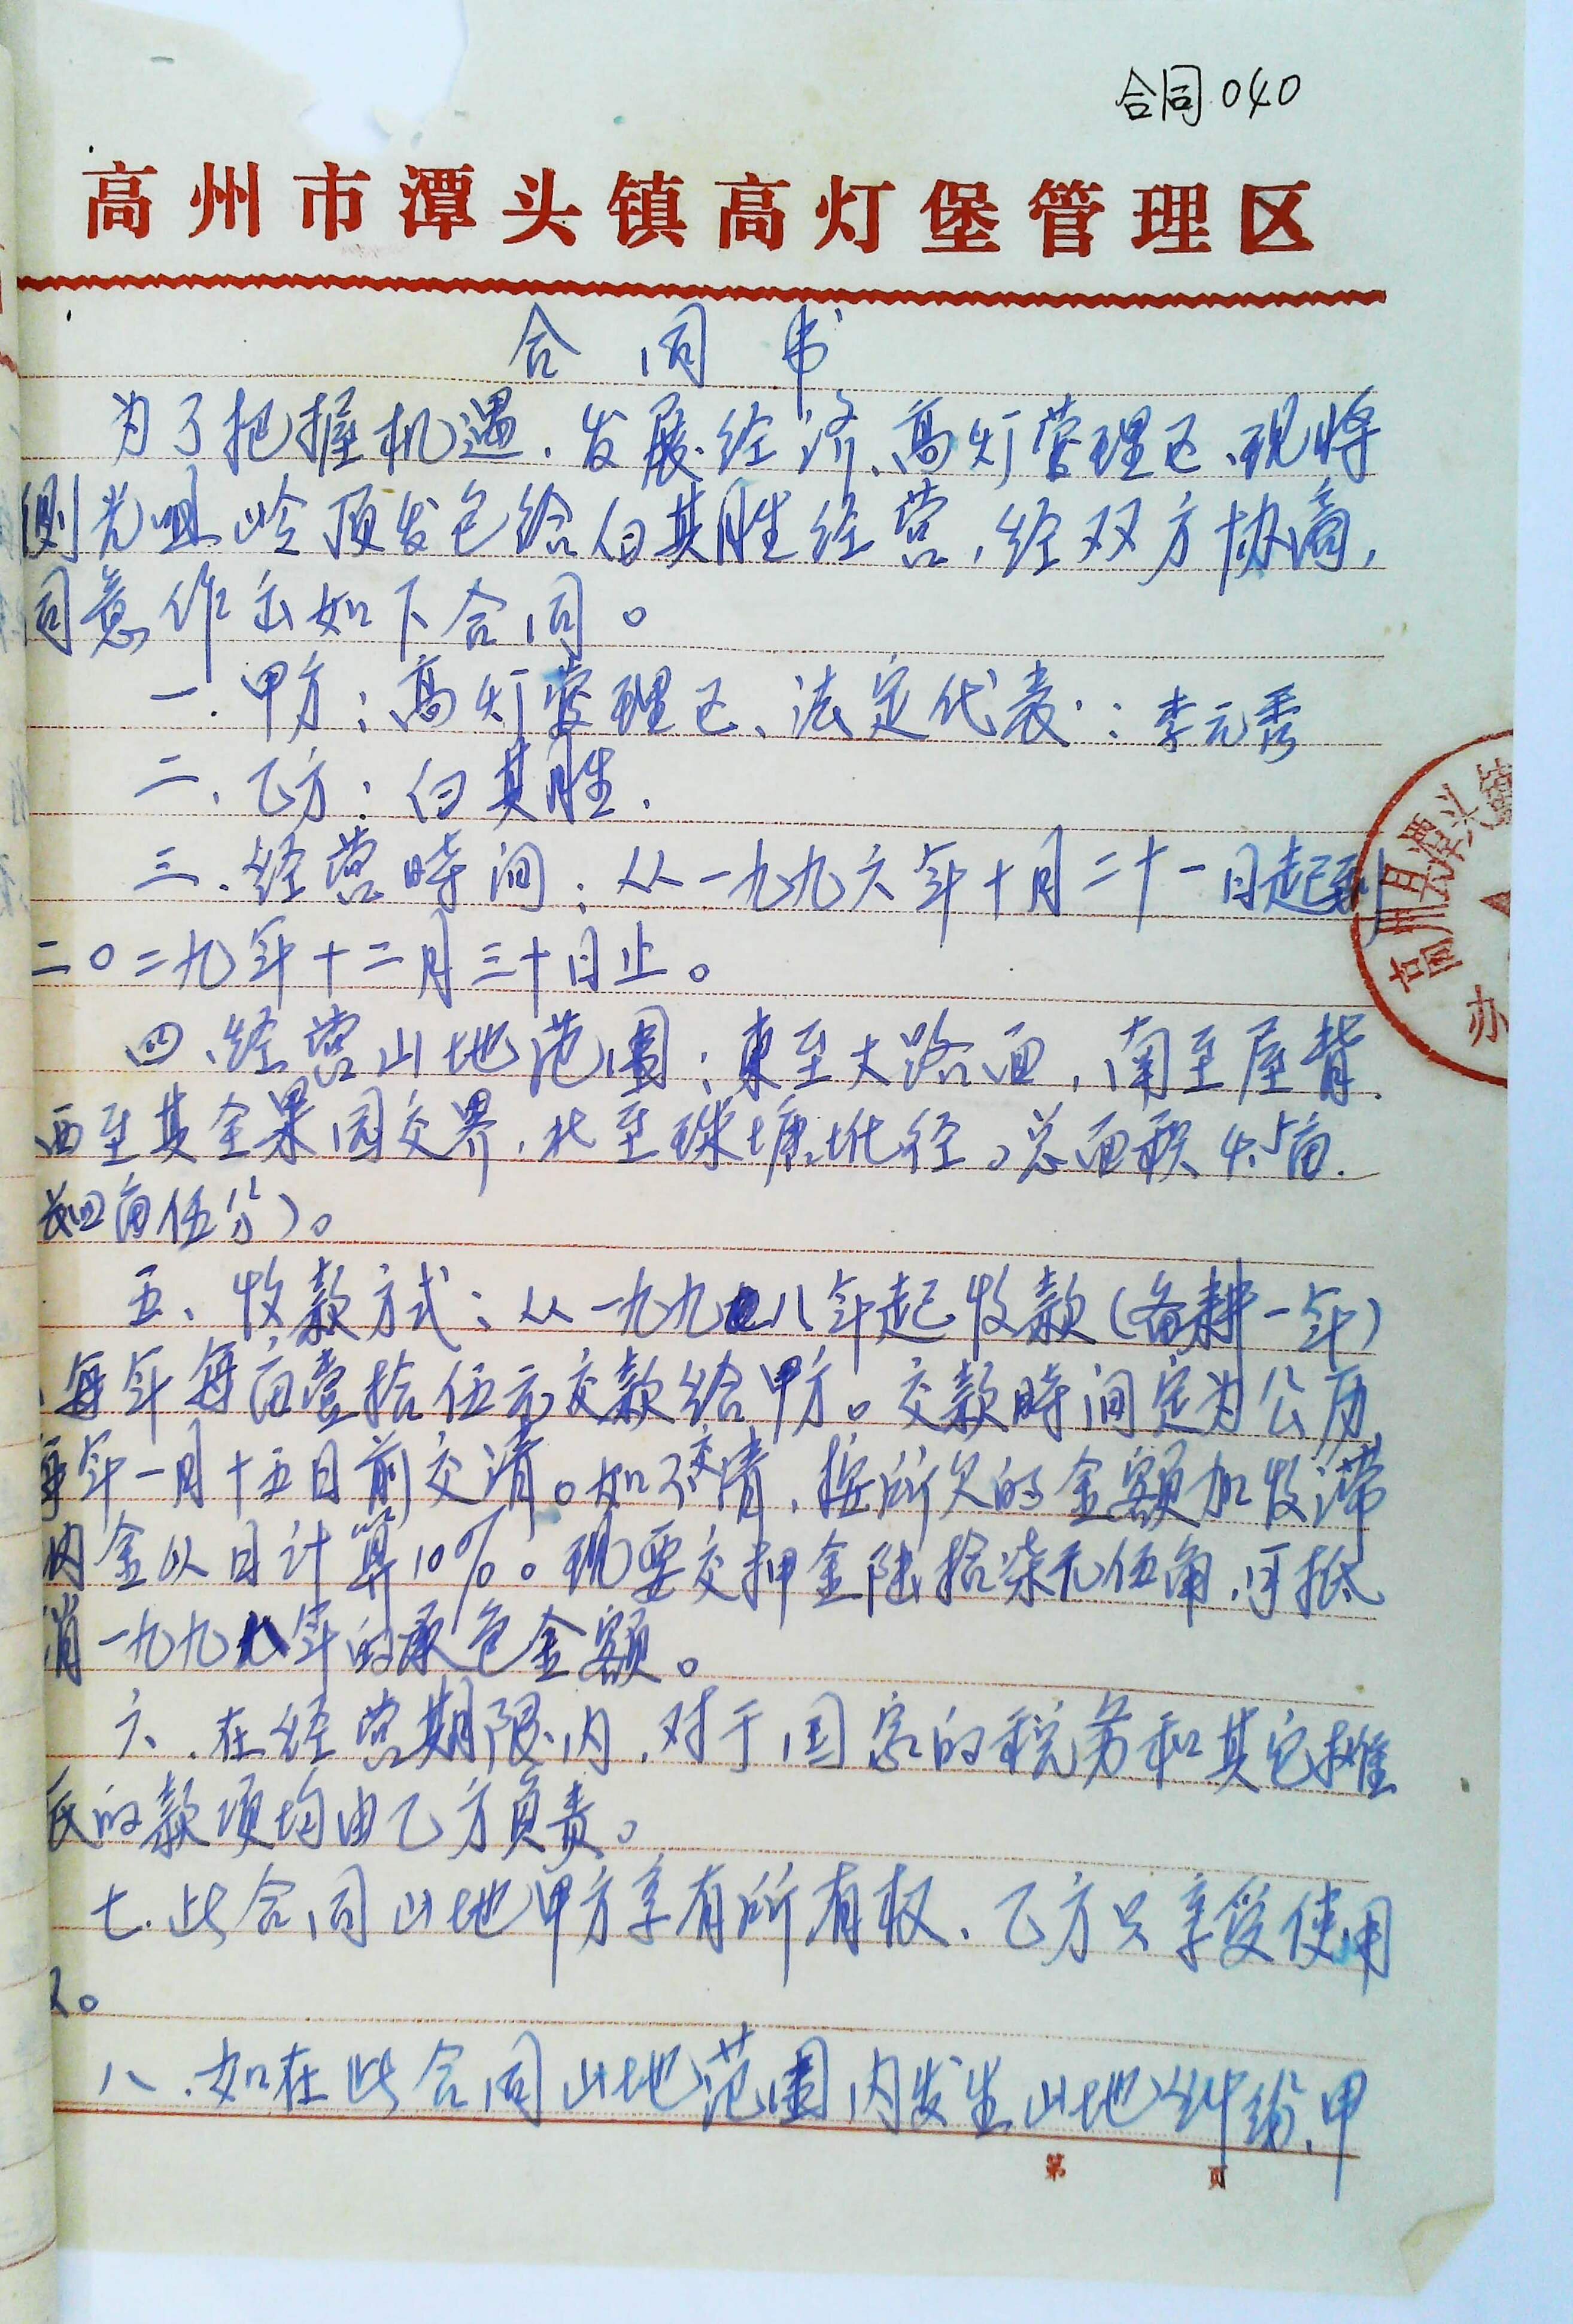 合同040
高州市潭头镇高灯堡管理区
合同书
为了把握机遇.发展经济、高灯管理区、现将
侧光咀岭顶发包给白其胜经营,经双方协商,
同意作出如下合同。
一.甲方:高灯管理区、法定代表:李元秀
二、乙方:白其胜.
三、经营時间:从一九九六年十月二十一日起到
二〇二九年十二月三十日止。
四、经营山地范围:東至大路面,南至屋背.
西至其全果园交界,北至珠塘坔径。总面积4.5亩.
四亩伍分)。
五、收款方式:从一九九八年起收款(备耕一年)
每年每亩壹拾伍元交款给甲方。交款時间定为公历
每年一月十五日前交清。如不交清,按所欠的金额加收滞
纳金以日计算10%。现要交押金陆拾柒元伍角,可抵
消一九九八年的承包金额。
六、在经营期限内,对于国家的税务和其它摊
派的款项均由乙方负责。
七.此合同山地甲方享有所有权、乙方只享受使用
权。
八、如在此合同山地范围内发生山地纠纷,甲
第 页
高州市潭头镇
办